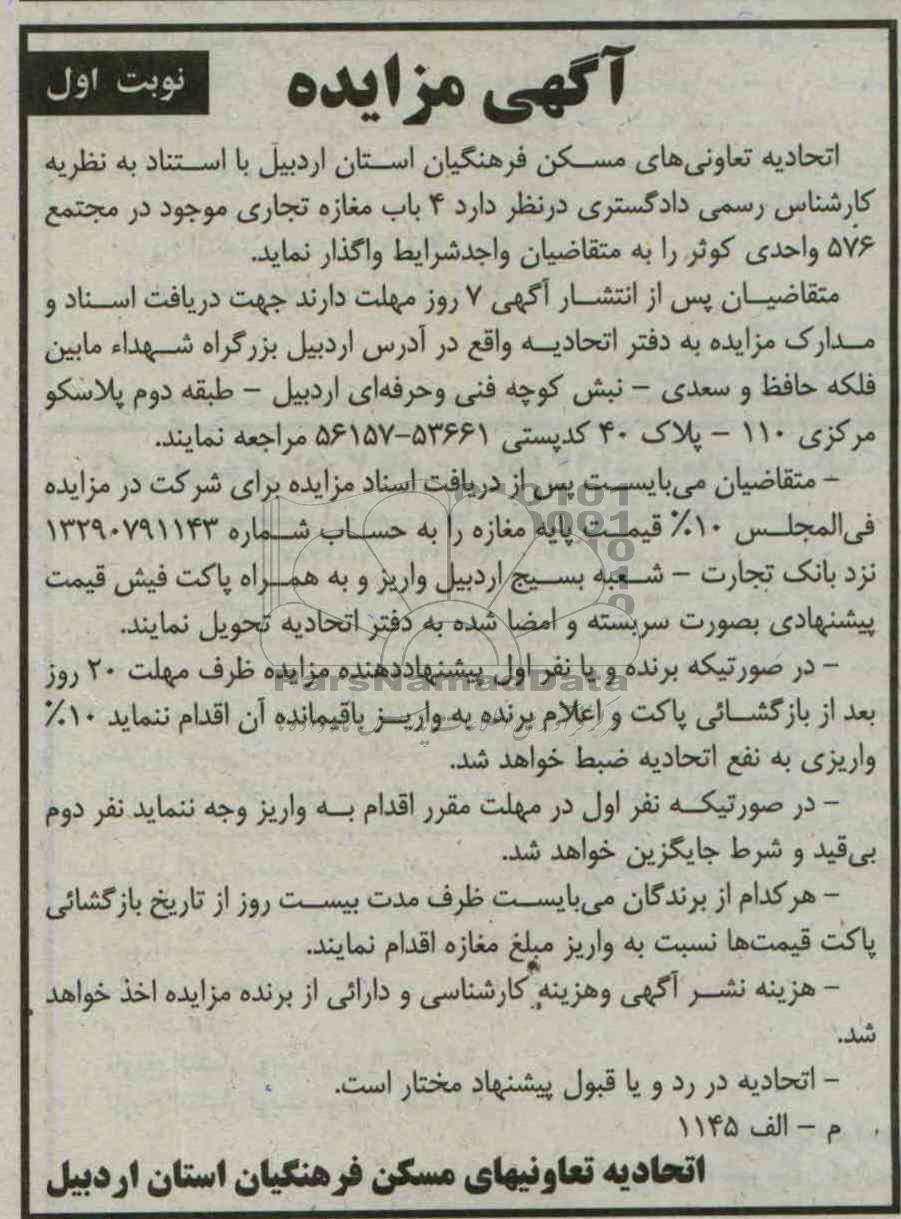 آگهی مزایده
نوبت اول
اتحادیه تعاونی‌های مسکن فرهنگیان استان اردبیل با استناد به نظریه
کارشناس رسمی دادگستری درنظر دارد ۴ باب مغازه تجاری موجود در مجتمع
۵۷۶ واحدی کوثر را به متقاضیان واجدشرایط واگذار نماید.
متقاضیان پس از انتشار آگهی ۷ روز مهلت دارند جهت دریافت اسناد و
مدارک مزایده به دفتر اتحادیه واقع در آدرس اردبیل بزرگراه شهداء مابین
فلکه حافظ و سعدی – نبش کوچه فنی وحرفه‌ای اردبیل – طبقه دوم پلاسکو
مرکزی ۱۱۰ – پلاک ۴۰ کدپستی ۵۳۶۶۱–۵۶۱۵۷ مراجعه نمایند.
– متقاضیان می‌بایست پس از دریافت اسناد مزایده برای شرکت در مزایده
فی‌المجلس ۱۰٪ قیمت پایه مغازه را به حساب شماره ۱۳۲۹۰۷۹۱۱۴۳
نزد بانک تجارت – شعبه بسیج اردبیل واریز و به همراه پاکت فیش قیمت
پیشنهادی بصورت سربسته و امضا شده به دفتر اتحادیه تحویل نمایند.
– در صورتیکه برنده و یا نفر اول پیشنهاددهنده مزایده ظرف مهلت ۲۰ روز
بعد از بازگشائی پاکت و اعلام برنده به واریز باقیمانده آن اقدام ننماید ۱۰٪
واریزی به نفع اتحادیه ضبط خواهد شد.
– در صورتیکه نفر اول در مهلت مقرر اقدام به واریز وجه ننماید نفر دوم
بی‌قید و شرط جایگزین خواهد شد.
– هرکدام از برندگان می‌بایست ظرف مدت بیست روز از تاریخ بازگشائی
پاکت قیمت‌ها نسبت به واریز مبلغ مغازه اقدام نمایند.
– هزینه نشر آگهی وهزینه کارشناسی و دارائی از برنده مزایده اخذ خواهد
شد.
– اتحادیه در رد و یا قبول پیشنهاد مختار است.
م – الف ۱۱۴۵
اتحادیه تعاونیهای مسکن فرهنگیان استان اردبیل
ParsNamadData